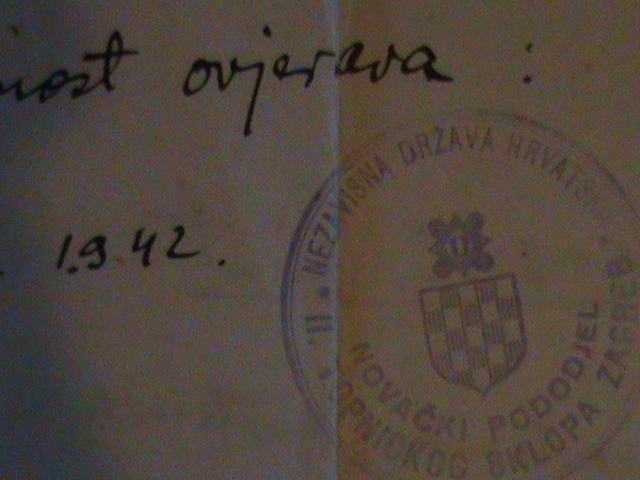 nost ovjerava :
1942.
NEZAVISNA DRŽAVA HRVATSKA
II.
NOVAČKI PODODJEL
TOPNIČKOG SKLOPA ZAGREB